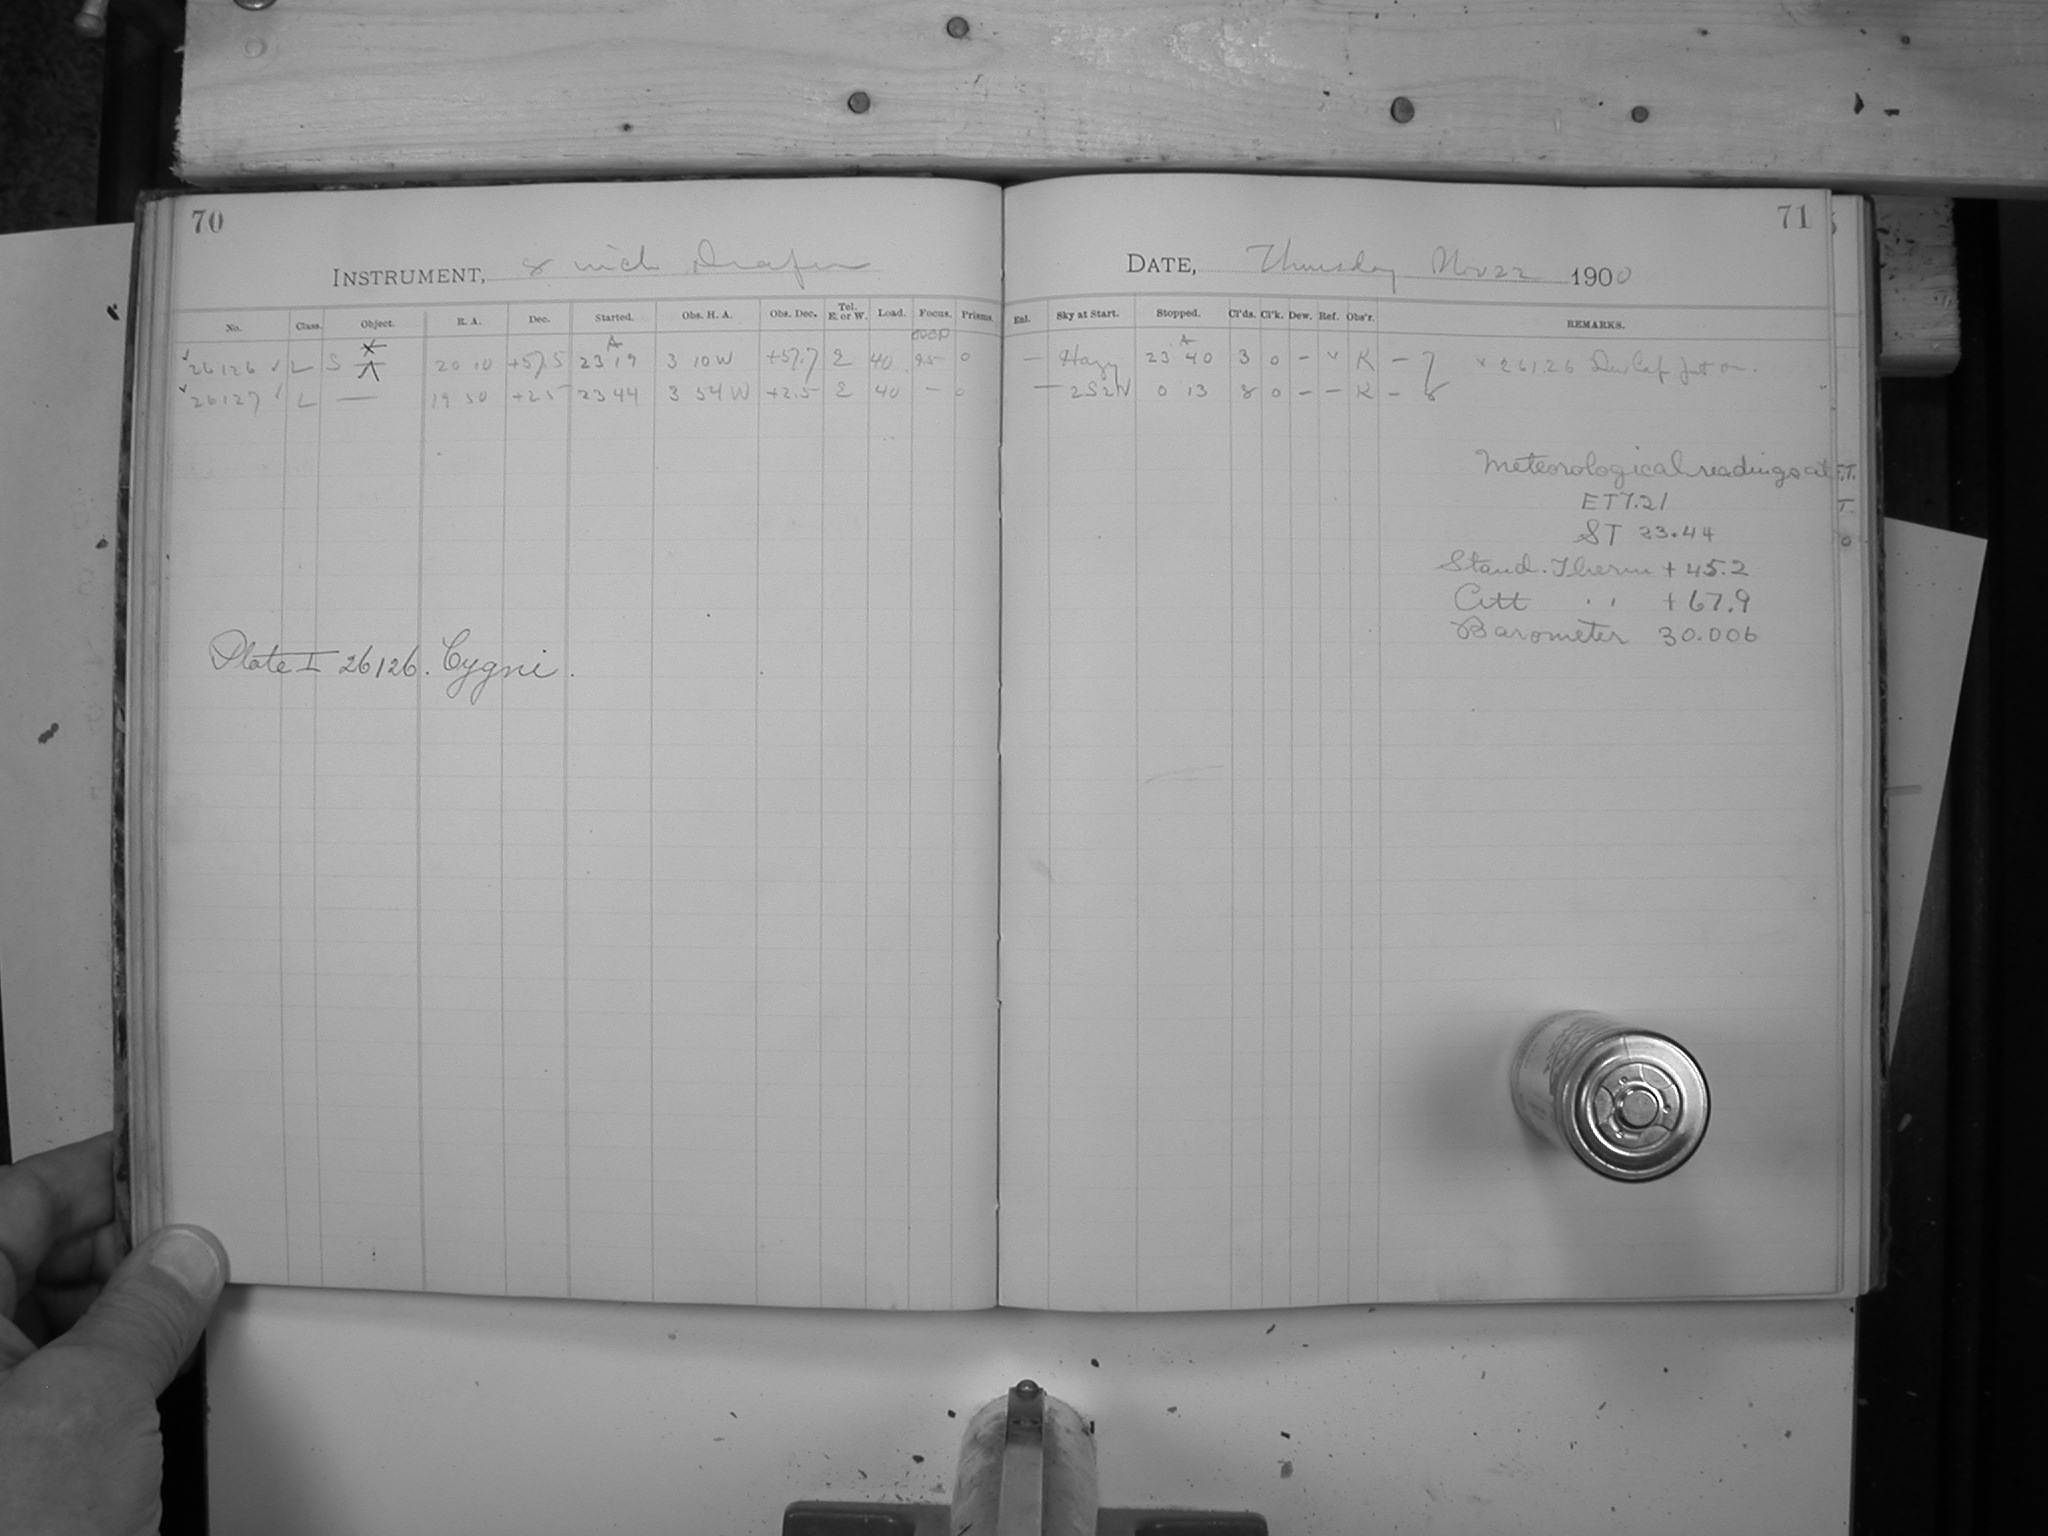 70
INSTRUMENT, 8 inch Draper
No. Class. Object. R. A. Dec. Started. Obs. H. A. Obs. Dec. Tel. E. or W. Load. Focus. Prisms.
26126 L S 20 10 +57.5 23 19 3 10 W +57.7 E 40 95 0
26127 L — 19 50 +2.5 23 44 3 54 W +2.5 E 40 — 0
Plate I 26126. Cygni.
71
DATE, Thursday Nov 22 1900
Enl. Sky at Start. Stopped. Cl'ds. Cl'k. Dew. Ref. Obs'r. REMARKS.
— Hazy 23 40 3 0 – v K – 7 v 26126 Dew Cap put on.
— 2S2N 0 13 8 0 – – K – 8
Meteorological readings at
ET 7.21
ST 23.44
Stand. Therm + 45.2
Att " + 67.9
Barometer 30.006